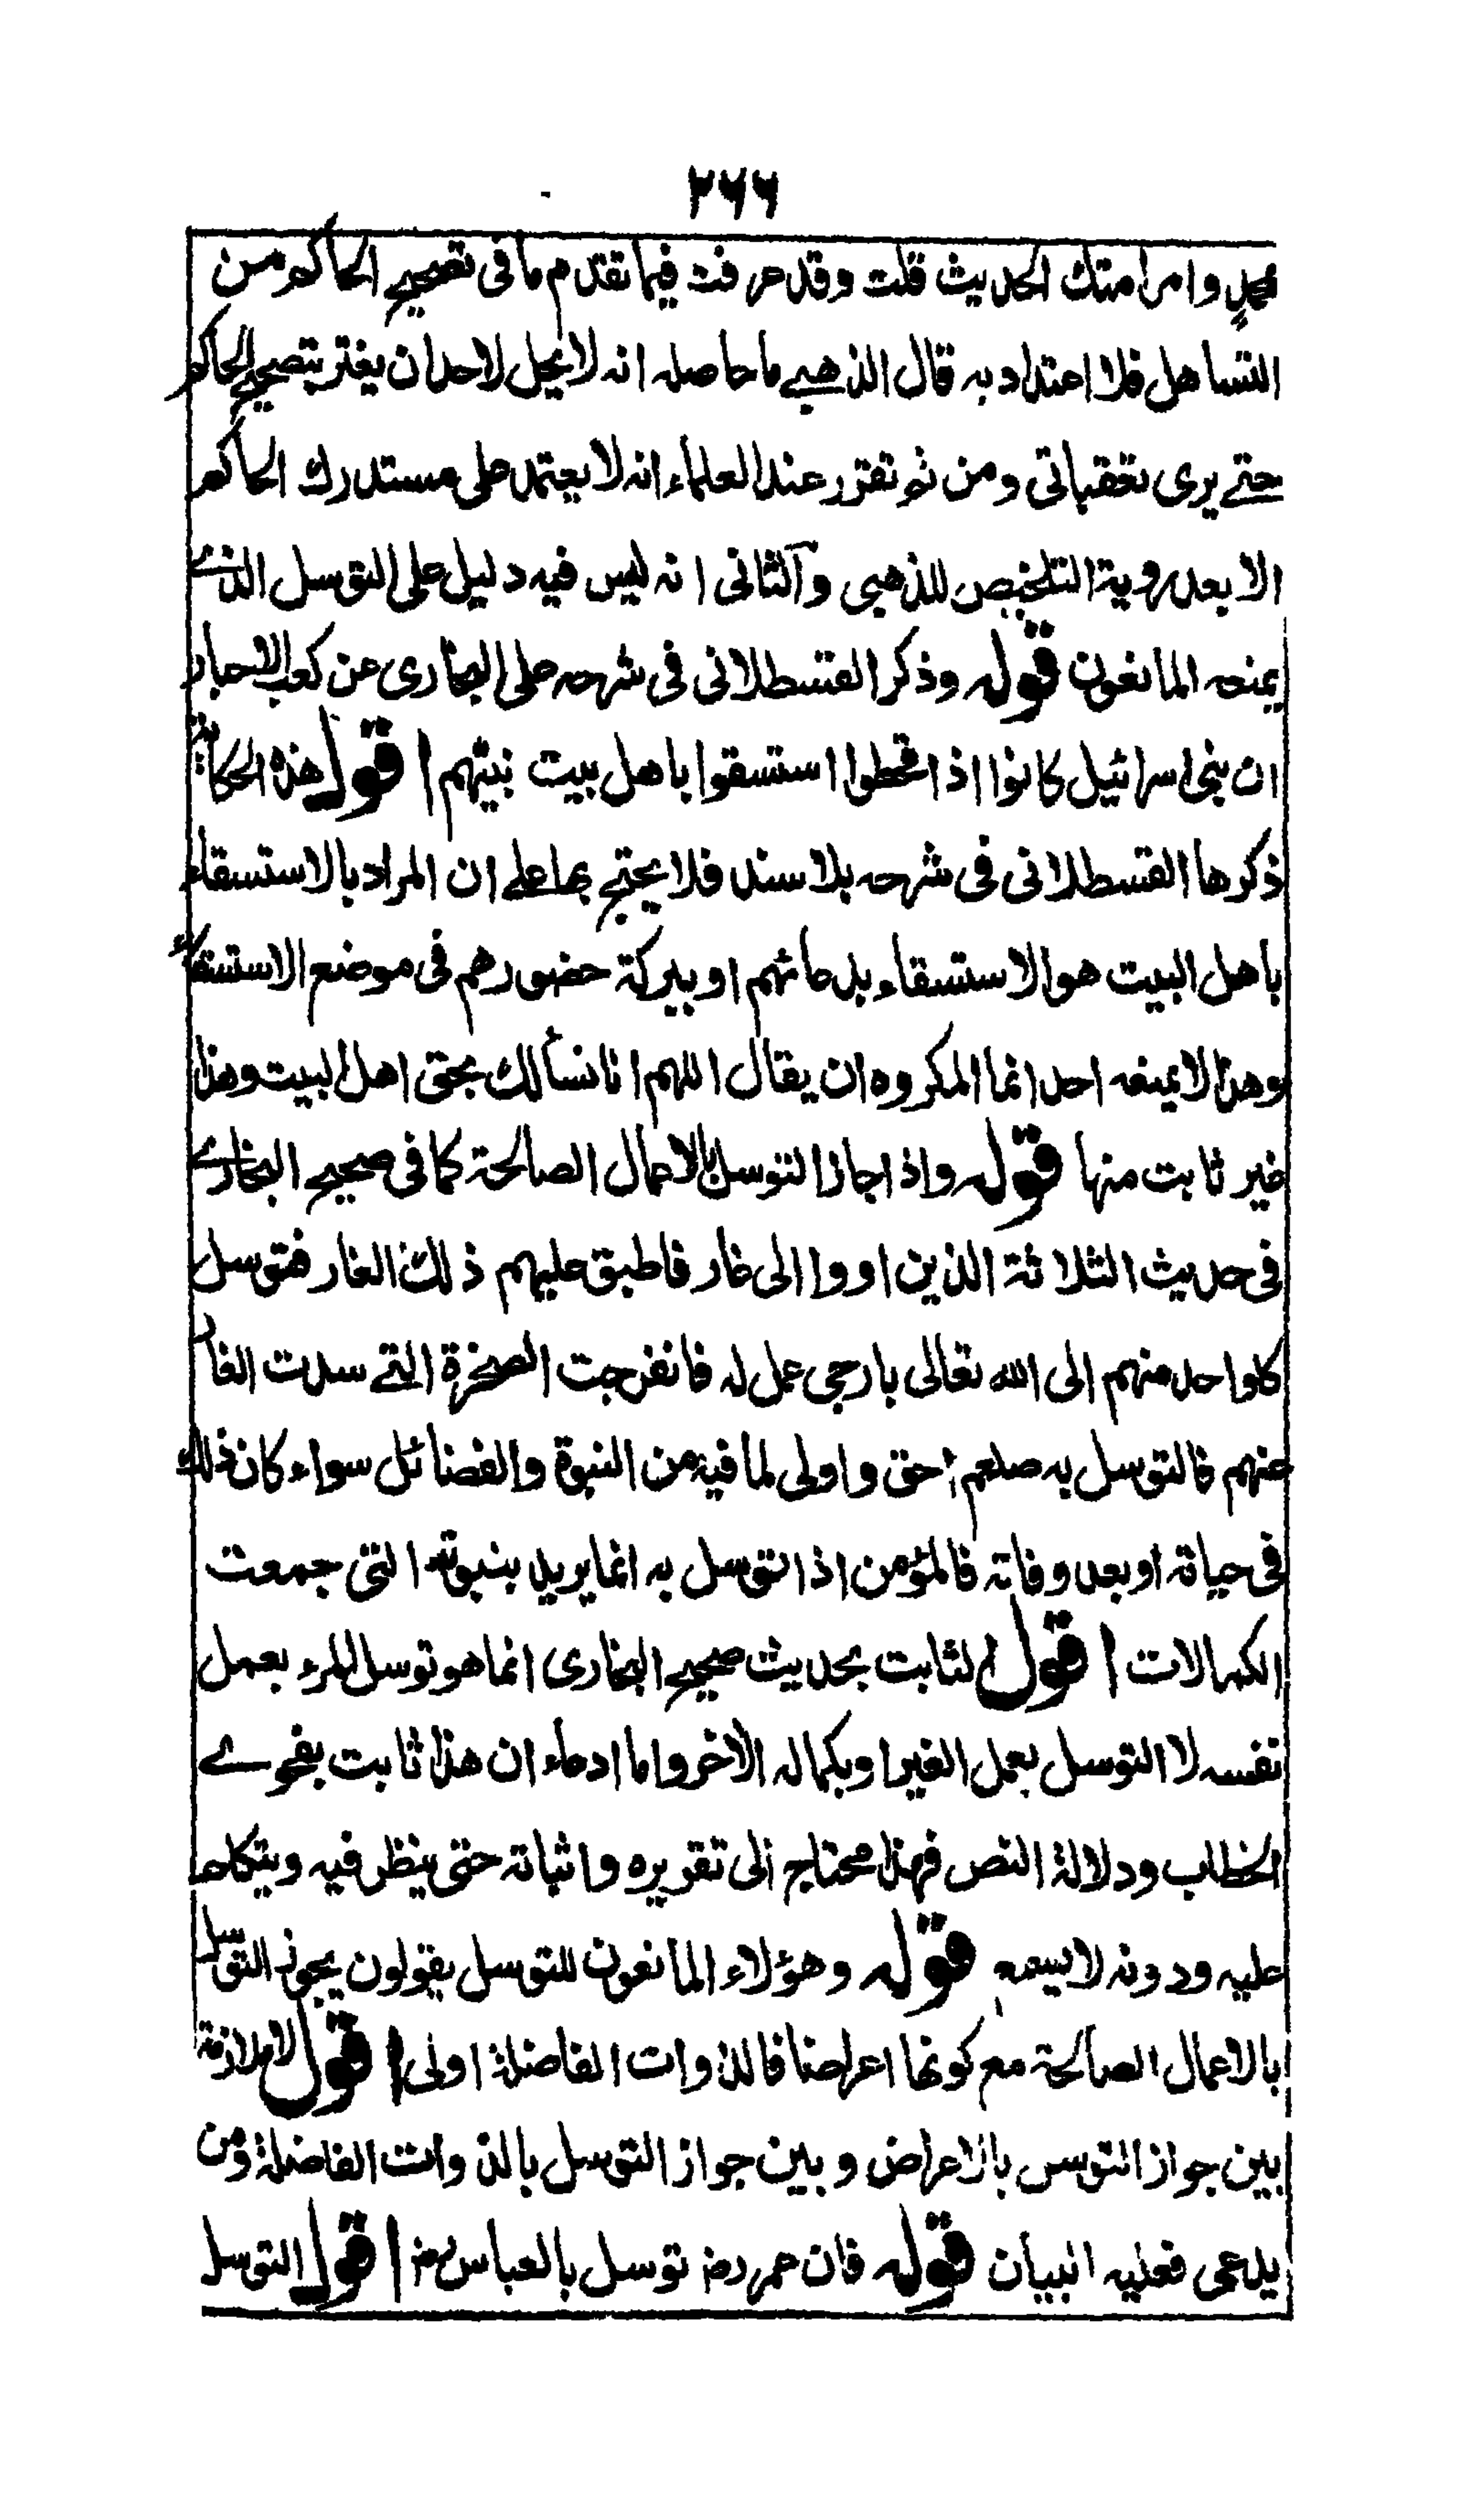 ۲۶۶
محمد وامر امتك الحديث قلت وقد عرفت فيما تقدم ما فى تصحيح الحاكم من
التساهل فلا اعتداد به قال الذهبى ما حاصله انه لا يحل لاحد ان يغتر بتصحيح الحاكم
حتى يرى تعقباتى ومن ثم تقرر عند العلماء انه لا يعتمد على مستدرك الحاكم
الا بعد روية التلخيص للذهبى والثانى انه ليس فيه دليل على التوسل الذى
يمنعه المانعون قوله وذكر القسطلانى فى شرحه على البخارى عن كعب الاحبار
ان بنى اسرائيل كانوا اذا قحطوا استسقوا باهل بيت نبيهم اقول هذه الحكاية
ذكرها القسطلانى فى شرحه بلا سند فلا يحتج بها على ان المراد بالاستسقاء
باهل البيت هو الاستسقاء بدعائهم او ببركة حضورهم فى موضع الاستسقاء
وهذا لا يمنعه احد انما المكروه ان يقال اللهم انا نسألك بحق اهل البيت وهذا
غير ثابت منها قوله واذا جاز التوسل بالاعمال الصالحة كما فى صحيح البخارى
فى حديث الثلاثة الذين اووا الى غار فاطبق عليهم ذلك الغار فتوسل
كل واحد منهم الى الله تعالى بارجى عمل له فانفرجت الصخرة التى سدت الغار
عنهم فالتوسل به صلعم احق واولى لما فيه من النبوة والفضائل سواء كان ذلك
فى حياته او بعد وفاته فالمؤمن اذا توسل به انما يريد بنبوته التى جمعت
الكمالات اقول الثابت بحديث صحيح البخارى انما هو توسل المرء بعمل
نفسه لا التوسل بعمل الغير او بكماله الاخر واما ادعاء ان هذا ثابت بفحوى
الخطاب ودلالة النص فهذا محتاج الى تقريره واثباته حتى ينظر فيه ويتكلم
عليه ودونه لا يسعه قوله وهؤلاء المانعون للتوسل يقولون يجوز التوسل
بالاعمال الصالحة مع كونها اعراضا فالذوات الفاضلة اولى اقول لا ملازمة
بين جواز التوسل بالاعراض وبين جواز التوسل بالذوات الفاضلة ومن
يدعى فعليه البيان قوله فان عمر رضـ توسل بالعباس رضـ اقول التوسل